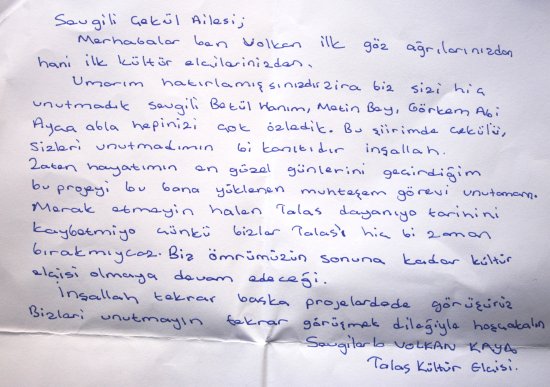 Sevgili Çekül Ailesi;
Merhabalar ben Volkan ilk göz ağrılarınızdan
hani ilk kültür elçilerinizden.
Umarım hatırlamışsınızdır zira biz sizi hiç
unutmadık sevgili Betül Hanım, Metin Bey, Görkem Abi
Ayça abla hepinizi çok özledik. Bu şiirimde çekülü,
sizleri unutmadımın bi kanıtıdır inşallah.
Zaten hayatımın en güzel günlerini geçirdiğim
bu projeyi bu bana yüklenen muhteşem görevi unutamam.
Merak etmeyin halen Talas dayanıyo tarihini
kaybetmiyo çünkü bizler Talas'ı hiç bi zaman
bırakmıycaz. Biz ömrümüzün sonuna kadar kültür
elçisi olmaya devam edeceği.
İnşallah tekrar başka projelerdede görüşürüz
Bizleri unutmayın tekrar görüşmek dileğiyle hoşçakalın
Sevgilerle VOLKAN KAYA
Talas Kültür Elçisi.